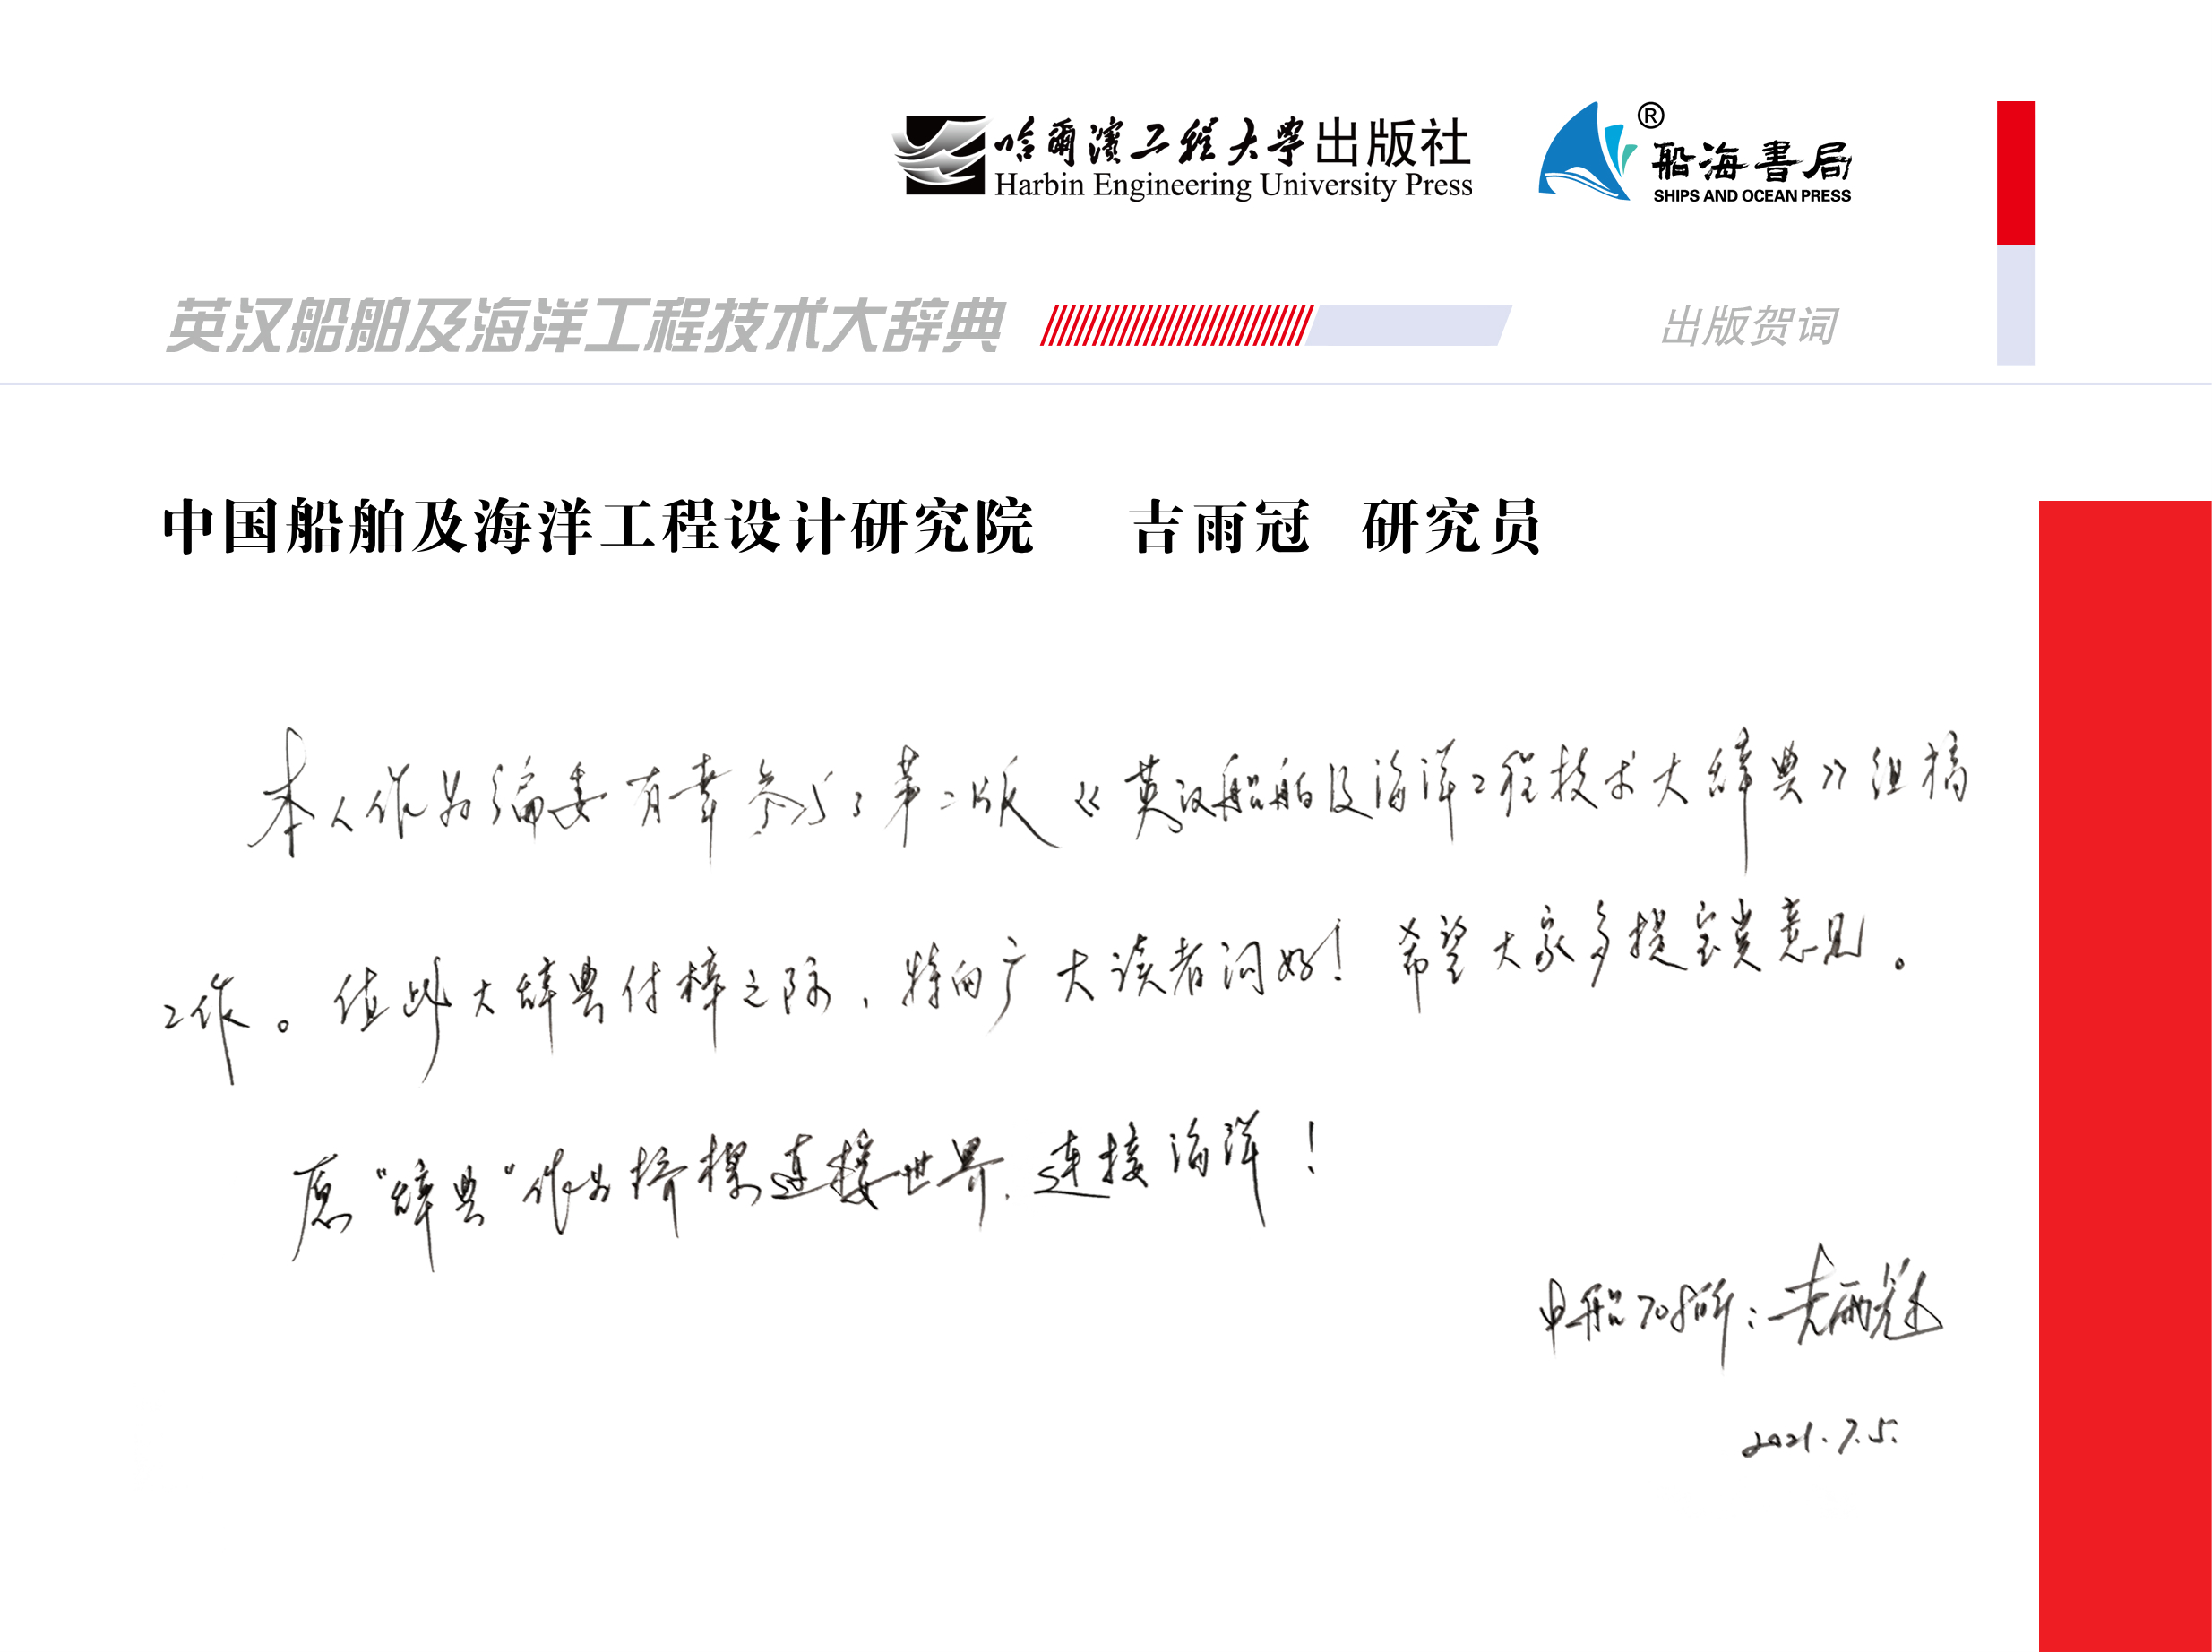 哈爾濱工程大學出版社
Harbin Engineering University Press
®
船海書局
SHIPS AND OCEAN PRESS
英汉船舶及海洋工程技术大辞典
出版贺词
中国船舶及海洋工程设计研究院 吉雨冠 研究员
本人作为编委有幸参与了第二版《英汉船舶及海洋工程技术大辞典》组稿
工作。值此大辞典付梓之际，特向广大读者问好！希望大家多提宝贵意见。
愿“辞典”作为桥梁连接世界，连接海洋！
中船708所：吉雨冠
2021.7.5.